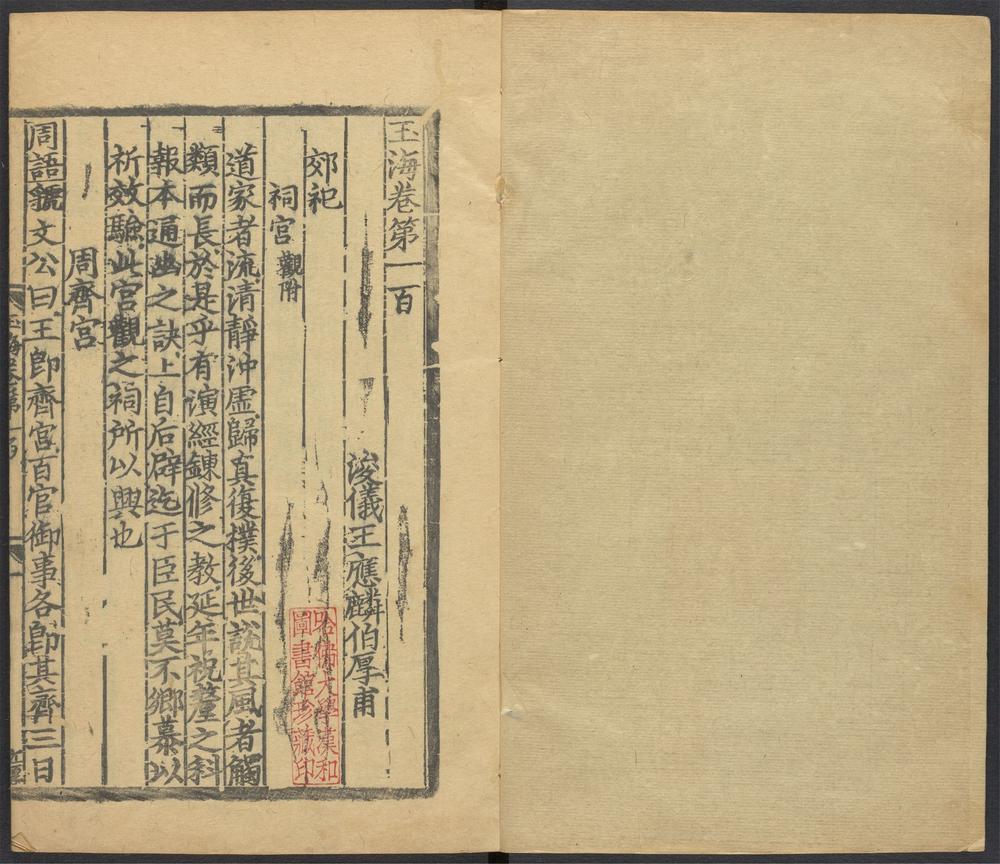 玉海卷第一百
浚儀王應麟伯厚甫
郊祀
祠宮觀附
道家者流清靜沖虛歸真復撲後世說其風者觸
類而長於是乎有演經鍊修之教延年祝釐之科
報本通幽之訣上自后辟迄于臣民莫不鄉慕以
祈效驗此宮觀之祠所以興也
周齊宮
周語虢文公曰王卽齊宮百官御事各卽其齊三日
玉海卷第一百
哈佛大學漢和
圖書館珍藏印